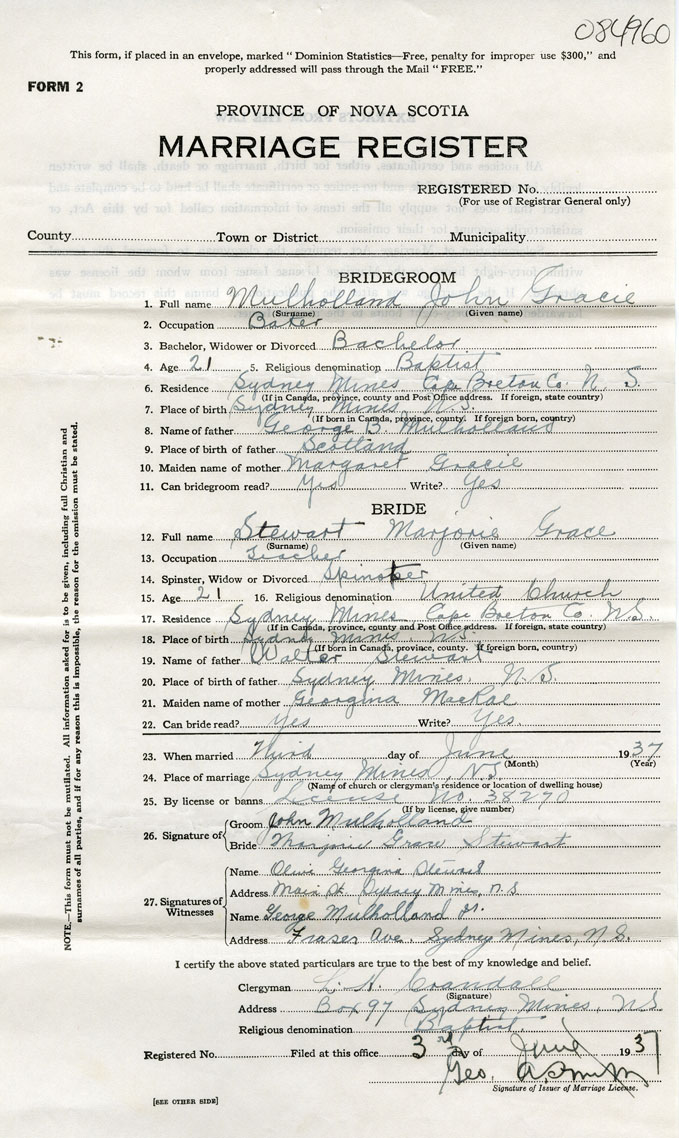 084960
This form, if placed in an envelope, marked "Dominion Statistics—Free, penalty for improper use $300," and
properly addressed will pass through the Mail "FREE."
FORM 2
PROVINCE OF NOVA SCOTIA
MARRIAGE REGISTER
REGISTERED No.
(For use of Registrar General only)
County Town or District Municipality
BRIDEGROOM
1. Full name Mulholland John Gracie
(Surname) (Given name)
2. Occupation Baker
3. Bachelor, Widower or Divorced Bachelor
4. Age 21 5. Religious denomination Baptist
6. Residence Sydney Mines Cape Breton Co. N. S.
(If in Canada, province, county and Post Office address. If foreign, state country)
7. Place of birth Sydney Mines N.S.
(If born in Canada, province, county. If foreign born, country)
8. Name of father George B. Mulholland
9. Place of birth of father Scotland
10. Maiden name of mother Margaret Gracie
11. Can bridegroom read? Yes Write? Yes
BRIDE
12. Full name Stewart Marjorie Grace
(Surname) (Given name)
13. Occupation Teacher
14. Spinster, Widow or Divorced Spinster
15. Age 21 16. Religious denomination United Church
17. Residence Sydney Mines Cape Breton Co. N.S.
(If in Canada, province, county and Post Office address. If foreign, state country)
18. Place of birth Sydney Mines N.S.
(If born in Canada, province, county. If foreign born, country)
19. Name of father Walter Stewart
20. Place of birth of father Sydney Mines, N. S.
21. Maiden name of mother Georgina MacRae
22. Can bride read? Yes Write? Yes.
23. When married Third day of June 1937
(Month) (Year)
24. Place of marriage Sydney Mines, N.S.
(Name of church or clergyman's residence or location of dwelling house)
25. By license or banns License No. 38290
(If by license, give number)
26. Signature of Groom John Mulholland
Bride Marjorie Grace Stewart
27. Signatures of Witnesses
Name Olive Georgina Stewart
Address Main St. Sydney Mines, N.S
Name George Mulholland Jr.
Address Fraser Ave. Sydney Mines, N.S.
I certify the above stated particulars are true to the best of my knowledge and belief.
Clergyman L. H. Crandall
(Signature)
Address Box 97 Sydney Mines, N.S.
Religious denomination Baptist
Registered No. Filed at this office 3rd day of June 1937
Geo.
Signature of Issuer of Marriage License.
[SEE OTHER SIDE]
NOTE.—This form must not be mutilated. All information asked for is to be given, including full Christian and
surnames of all parties, and if for any reason this is impossible, the reason for the omission must be stated.